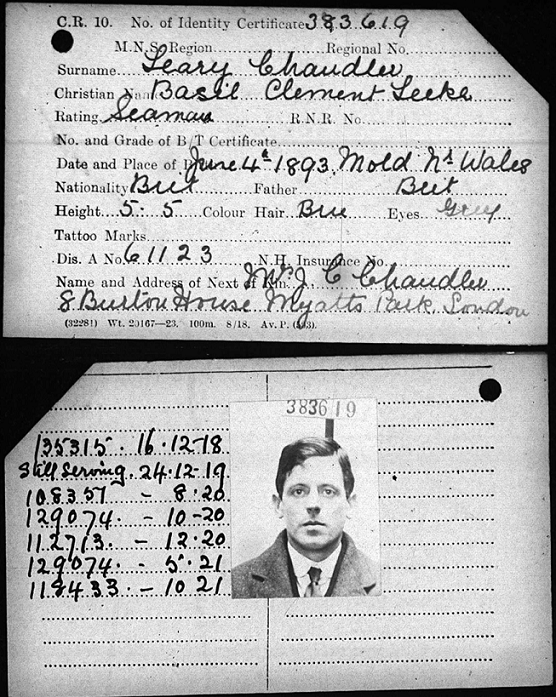 C.R. 10. No. of Identity Certificate 383619
M.N.S. Region Regional No.
Surname Leary Chandler
Christian Nam Basil Clement Leeke
Rating Seaman R.N.R. No.
No. and Grade of B/T Certificate
Date and Place of B June 4th 1893. Mold Nth Wales
Nationality Brit Father Brit
Height 5. 5 Colour Hair Brn Eyes Grey
Tattoo Marks
Dis. A No. 61123 N.H. Insurance No.
Name and Address of Next of Kin. Mrs J C Chandler
8 Burton House Myatts Park London
(32281) Wt. 20167—23. 100m. 8/18. Av. P. (
383619
135315. 16.12-18
Still Serving. 24.12-19
108357 - 8.20
129074. - 10-20
112713. - 12.20
129074. - 5.21
118433. - 10 21